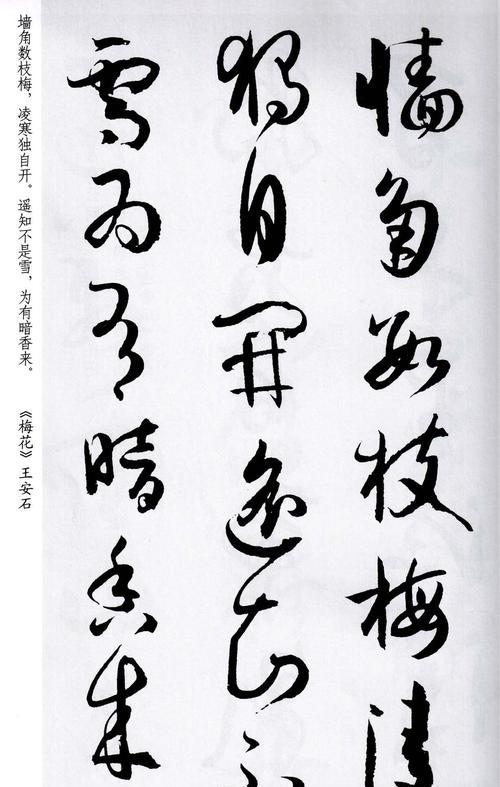 墙角数枝梅凌
独自開遥知不
雪为有暗香来
墙角数枝梅，凌寒独自开。遥知不是雪，为有暗香来。 《梅花》王安石